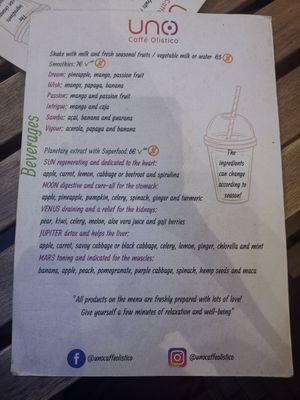 UNO
Caffè Olistico
Shake with milk and fresh seasonal fruits / vegetable milk or water €5
Smoothies: 7€
Dream: pineapple, mango, passion fruit
Wish: mango, papaya, banana
Passion: mango and passion fruit
Intrigue: mango and caja
Samba: açai, banana and guarana
Vigour: acerola, papaya and banana
Beverages
Planetary extract with Superfood: 6€
SUN regenerating and dedicated to the heart:
apple, carrot, lemon, cabbage or beetroot and spirulina
MOON digestive and cure-all for the stomach:
apple, pineapple, pumpkin, celery, spinach, ginger and turmeric
VENUS draining and a relief for the kidneys:
pear, kiwi, celery, melon, aloe vera juice and goji berries
JUPITER detox and helps the liver:
apple, carrot, savoy cabbage or black cabbage, celery, lemon, ginger, chlorella and mint
MARS toning and indicated to the muscles:
banana, apple, peach, pomegranate, purple cabbage, spinach, hemp seeds and maca
The
ingredients
can change
according to
season!
"All products on the menu are freshly prepared with lots of love!
Give yourself a few minutes of relaxation and well-being"
@unocaffeolistico
@unocaffeolistico